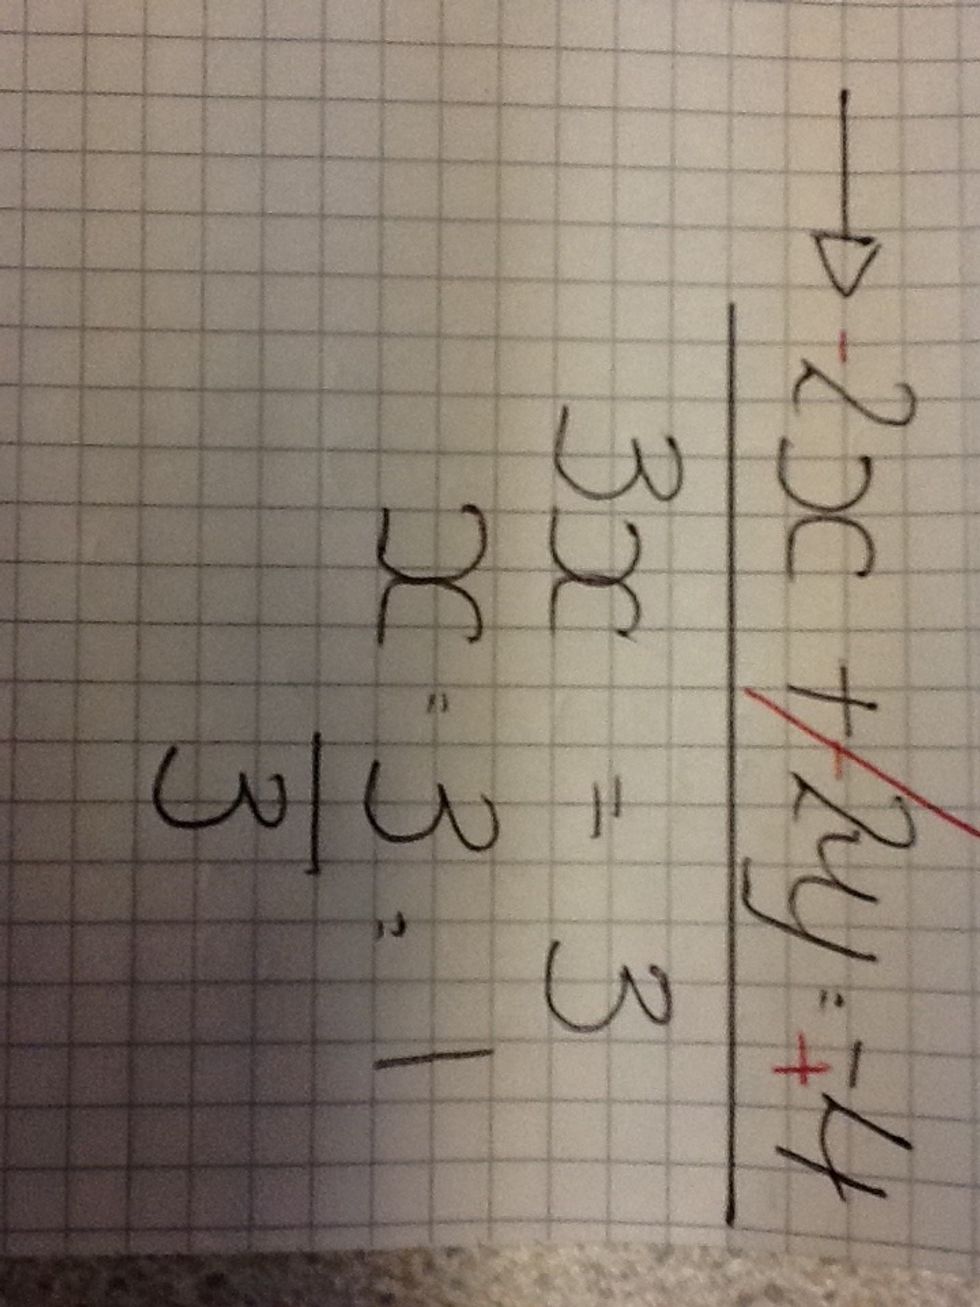 → -2x + 2y = -4
- +
3x = 3
x = 3 = 1
3